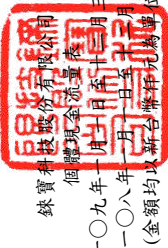 錸寶科技股份有限公司
個體現金流量表
一〇九年一月一日至十二月三
一〇八年一月一日至十二月三
(金額均以新台幣仟元為單位